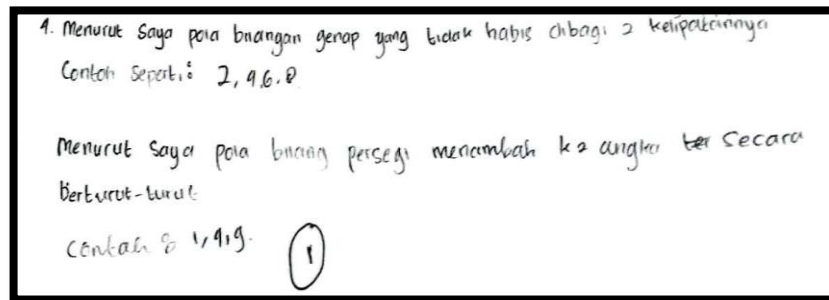 4. Menurut Saya pola bilangan genap yang tidak habis dibagi 2 kelipatannya
Contoh Seperti : 2, 4.6.8
Menurut Saya pola bilang persegi menambah k2 angka ter Secara
Berturut-turut
Contoh : 1,4,9.
1